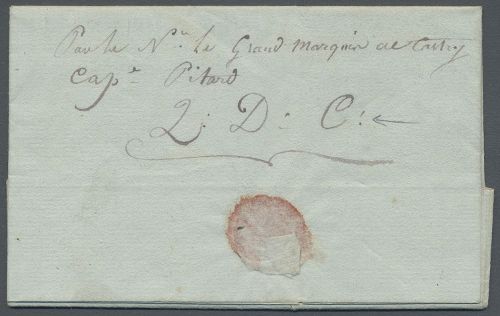 Par le N.re Le Grand Marquis de Castry
Cap.e Pitard
2: D: C: